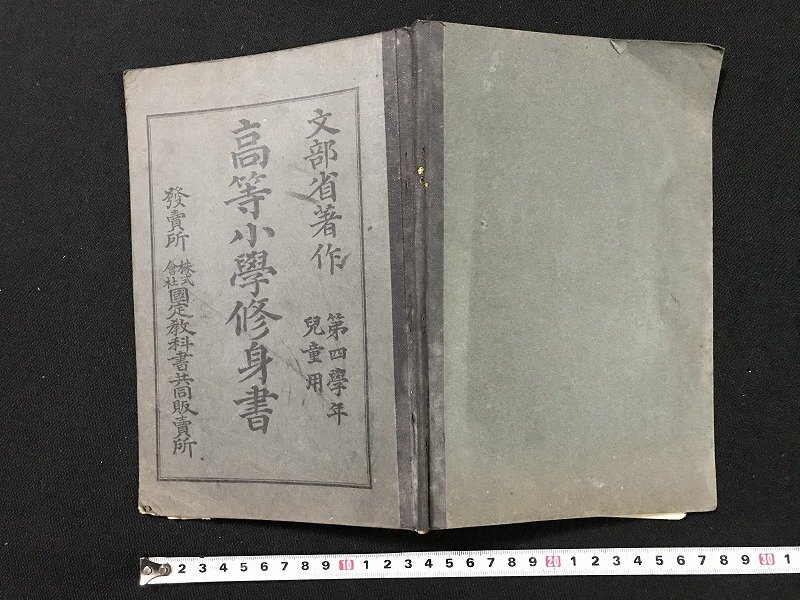 文部省著作
第四學年
兒童用
高等小學修身書
發賣所 株式會社國定教科書共同販賣所
2 3 4 5 6 7 8 9 10 1 2 3 4 5 6 7 8 9 20 1 2 3 4 5 6 7 8 9 30 1